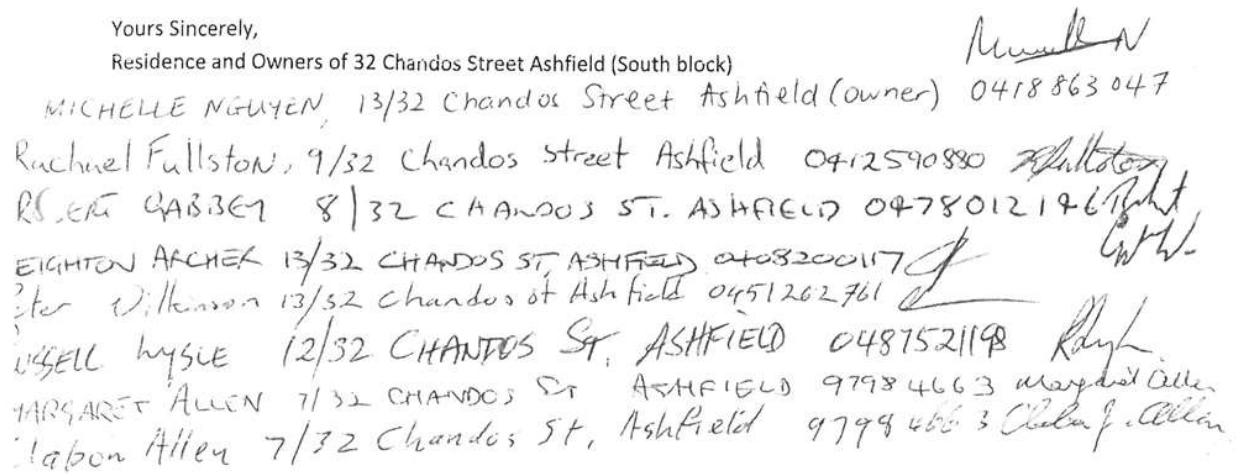 Yours Sincerely,
Residence and Owners of 32 Chandos Street Ashfield (South block)
MICHELLE NGUYEN, 13/32 Chandos Street Ashfield (owner) 0418 863 047
Rachael Fullston, 9/32 Chandos Street Ashfield 0412590880
GABBEY 8/32 CHANDOS ST. ASHFIELD 0478012146
EIGHTON ARCHER 13/32 CHANDOS ST, ASHFIELD 0408200117
Wilkinson 13/32 Chandos st Ashfield 0451262761
USSELL LYSLE 12/32 CHANDOS ST, ASHFIELD 0487521198
MARGARET ALLEN 7/32 CHANDOS ST ASHFIELD 9798 4663 Margaret Allen
Allen 7/32 Chandos St, Ashfield 9798 4663